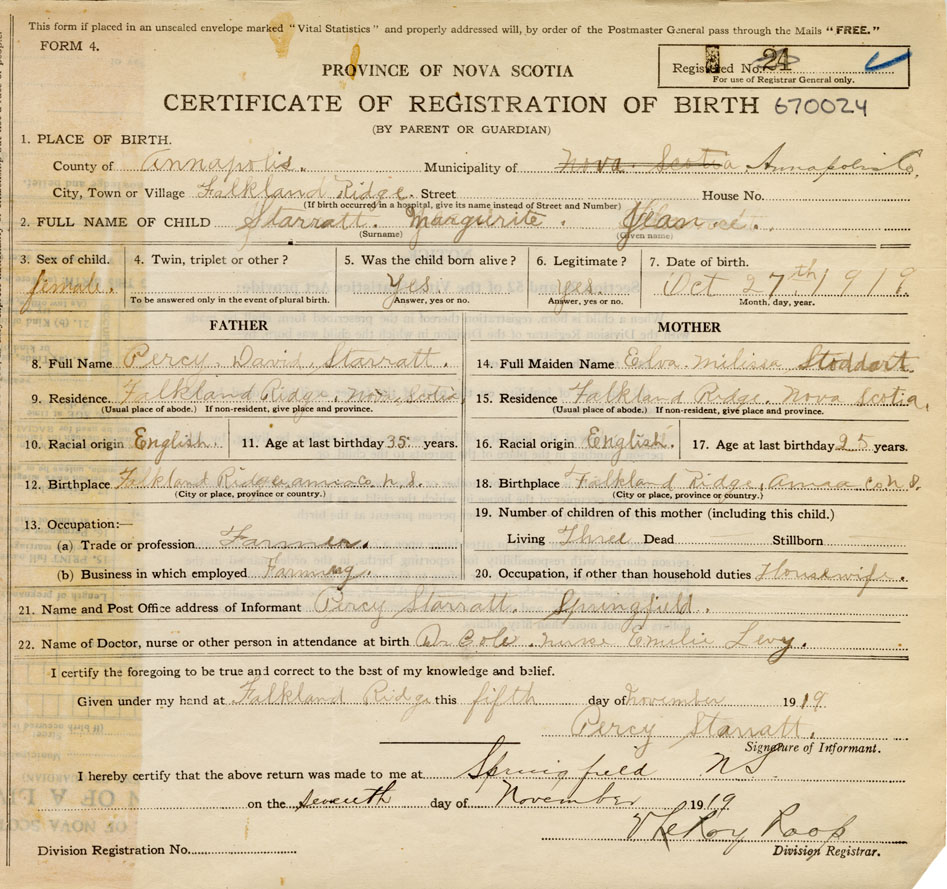 This form if placed in an unsealed envelope marked "Vital Statistics" and properly addressed will, by order of the Postmaster General pass through the Mails "FREE."
FORM 4.
Registered No. 24
For use of Registrar General only.
PROVINCE OF NOVA SCOTIA
CERTIFICATE OF REGISTRATION OF BIRTH 670024
(BY PARENT OR GUARDIAN)
1. PLACE OF BIRTH.
County of Annapolis. Municipality of Nova Scotia Annapolis Co.
City, Town or Village Falkland Ridge. Street House No.
(If birth occurred in a hospital, give its name instead of Street and Number)
2. FULL NAME OF CHILD Starratt. Marguerite. Jean
(Surname) (Given name)
3. Sex of child. 4. Twin, triplet or other? 5. Was the child born alive? 6. Legitimate? 7. Date of birth.
female. Yes Yes Oct 27th 1919.
To be answered only in the event of plural birth. Answer, yes or no. Answer, yes or no. Month, day, year.
FATHER MOTHER
8. Full Name Percy David Starratt. 14. Full Maiden Name Elva Melissa Stoddart
9. Residence. Falkland Ridge. Nova Scotia 15. Residence Falkland Ridge. Nova Scotia.
(Usual place of abode.) If non-resident, give place and province. (Usual place of abode.) If non-resident, give place and province.
10. Racial origin English. 11. Age at last birthday 35 years. 16. Racial origin English. 17. Age at last birthday 25 years.
12. Birthplace Falkland Ridge co N.S. 18. Birthplace Falkland Ridge, co N.S.
(City or place, province or country.) (City or place, province or country.)
13. Occupation:— 19. Number of children of this mother (including this child.)
(a) Trade or profession Farmer. Living Three Dead — Stillborn —
(b) Business in which employed Farming. 20. Occupation, if other than household duties Housewife.
21. Name and Post Office address of Informant Percy Starratt. Springfield.
22. Name of Doctor, nurse or other person in attendance at birth Dr Cole. nurse Emilie Levy.
I certify the foregoing to be true and correct to the best of my knowledge and belief.
Given under my hand at Falkland Ridge this fifth day of November 1919
Percy Starratt.
Signature of Informant.
I hereby certify that the above return was made to me at Springfield N S
on the seventh day of November 1919
V LeRoy Roop
Division Registration No. Division Registrar.